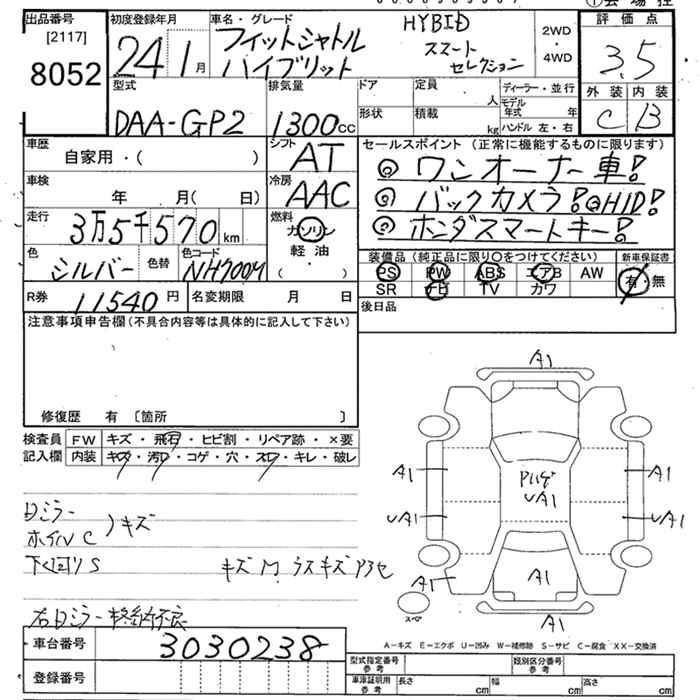 出品番号
[2117]
8052
初度登録年月
24 1月
車名・グレード
フィットシャトル
ハイブリット
HYBID
スマート
セレクション
2WD
・
4WD
評価点
3.5
外装 内装
C B
型式
DAA-GP2
排気量
1300cc
ドア
定員
人
ディーラー・並行
モデル年式 年
形状
積載
kg
ハンドル 左・右
車歴
自家用・( )
シフト
AT
車検
年 月( 日)
冷房
AAC
走行
3万5千570km
燃料
ガソリン
軽油
( )
色
シルバー
色替
色コード
NH700M
R券 11540円
名変期限 月 日
セールスポイント (正常に機能するものに限ります)
◎ワンオーナー車!
◎バックカメラ!◎HID!
◎ホンダスマートキー!
装備品(純正品に限り○をつけてください)
PS PW ABS エアB AW
SR ナビ TV カワ
新車保証書
有・無
後日品
注意事項申告欄(不具合内容等は具体的に記入して下さい)
修復歴 有 〔箇所 〕
検査員記入欄
FW キズ・飛石・ヒビ割・リペア跡・×要
内装 キズ・汚レ・コゲ・穴・スレ・キレ・破レ
ホイルC
キズ
下回りS
キズM
右ドミラー格納不良
A1
A1
A1
UA1
UA1
UA1
A1
A1
A1
スペア
車台番号 3030238
登録番号
A-キズ E-エクボ U-凹み W-補修跡 S-サビ C-腐食 XX-交換済
型式指定番号
参考
類別区分番号
参考
車庫証明用
参考
長さ cm
幅 cm
高さ cm